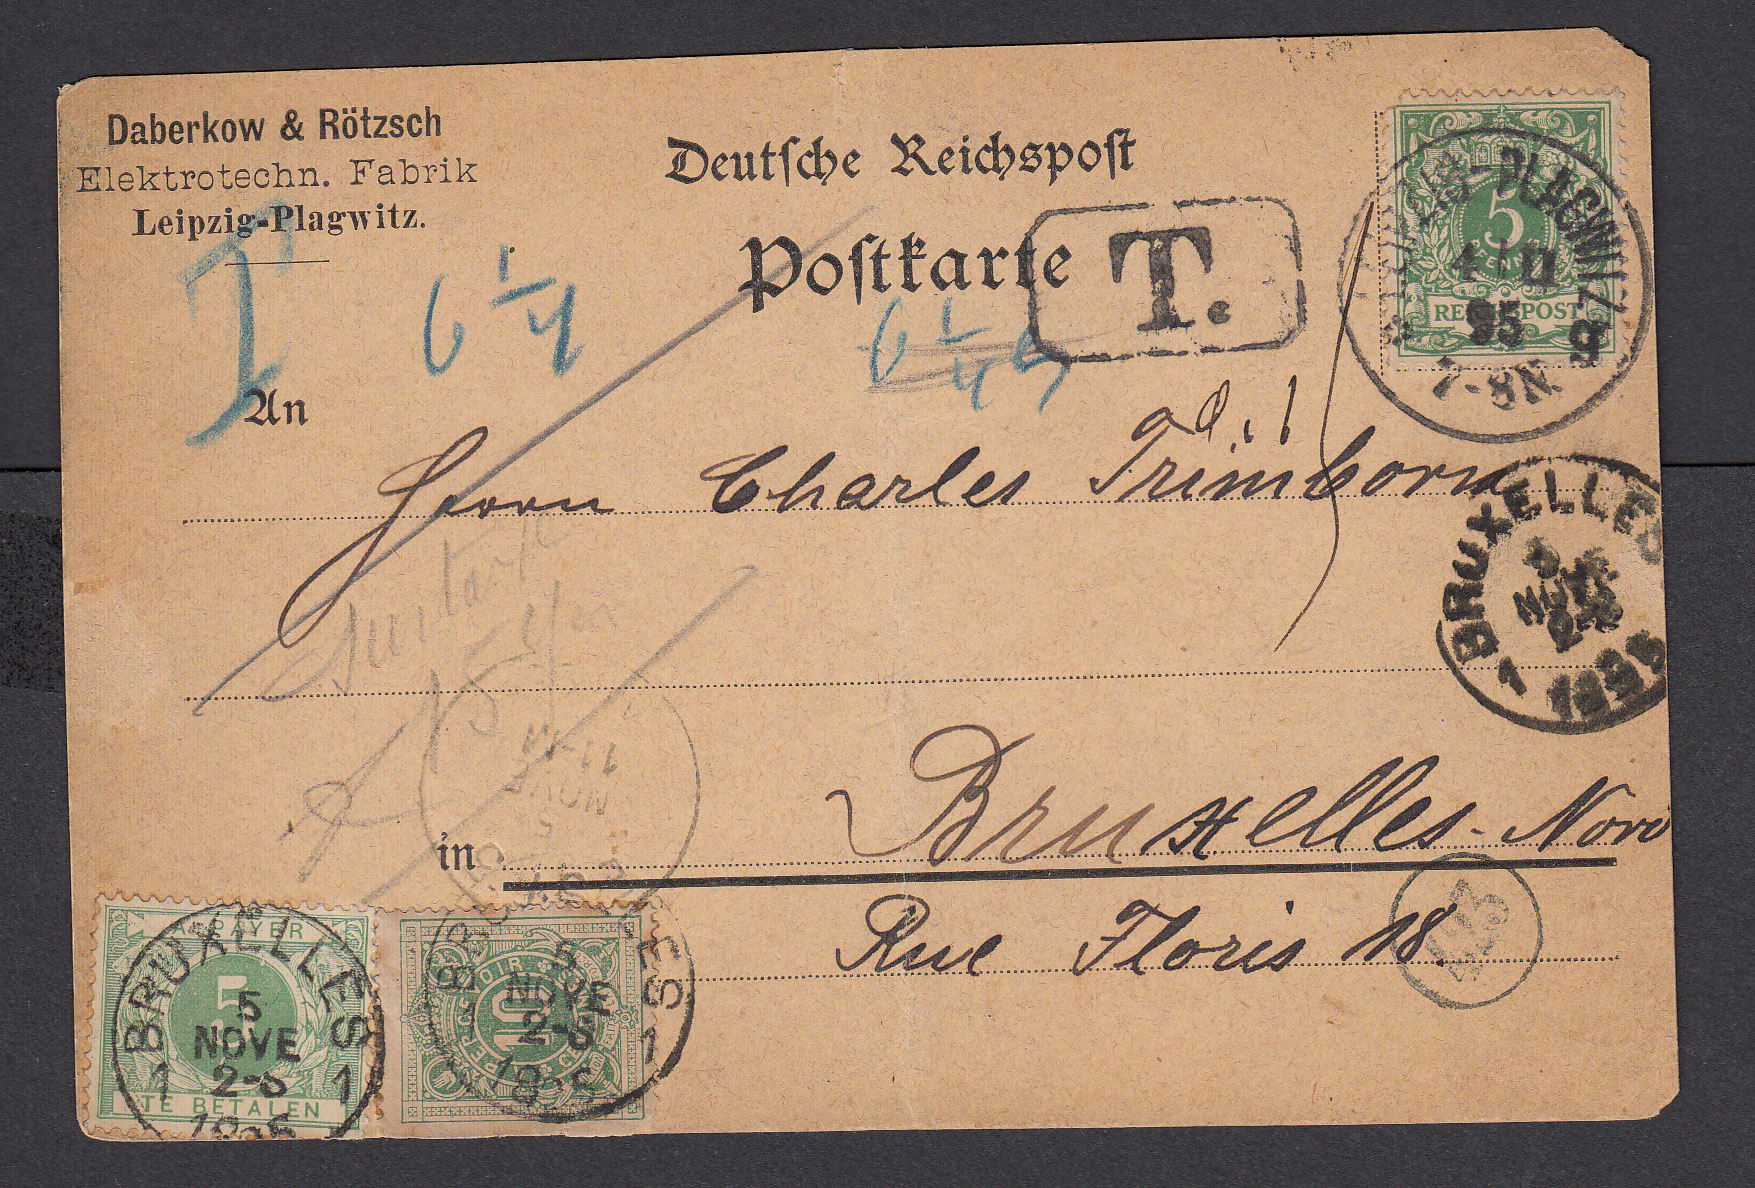 Daberkow & Rötzsch
Elektrotechn. Fabrik
Leipzig-Plagwitz.
Deutsche Reichspost
Postkarte
T.
5
REICHSPOST
LEIPZIG-PLAGWITZ
4/11
95
7-8N.
6 1/4
6 1/4
An
Herrn Charles Trimborn
BRUXELLES
5
NOVE
2-
1
1895
15
11-M
NOVE
5
in Bruxelles-Nord
Rue Floris 18.
A PAYER
5
TE BETALEN
BRUXELLES
5
NOVE
2-S
1 1
1895
10
BRUXELLES
5
NOVE
2-S
1
1895